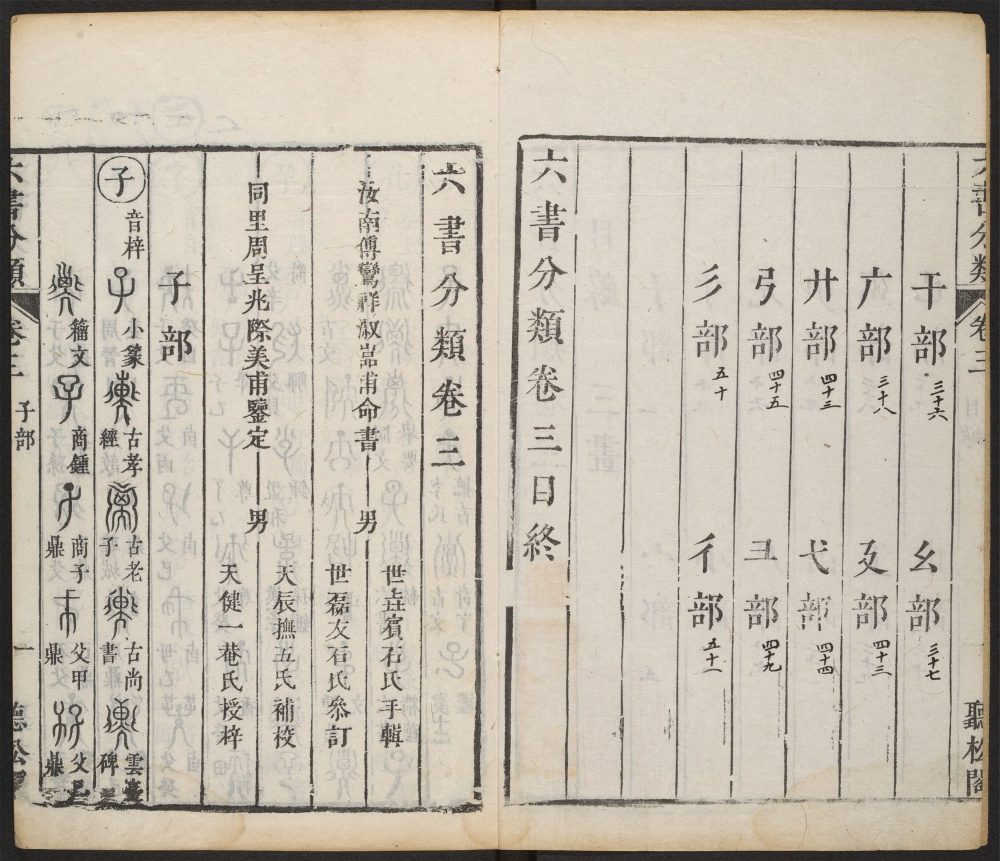 干部 三十六 幺部 三十七
广部 三十八 廴部 四十二
廾部 四十三 弋部 四十四
弓部 四十五 彐部 四十九
彡部 五十 彳部 五十一
六書分類卷三目終
聽松閣
六書分類卷三
汝南傅鸞祥叔嵓甫命書 男 世垚賓石氏手輯
世磊友石氏叅訂
同里周呈兆際美甫鑒定 男 天辰撫五氏補校
天健一菴氏授梓
子部
子 音梓 小篆 古孝經 古老子 古尚書 雲臺碑
籀文 商鍾 商子鼎 父甲鼎 父己鼎
六書分類 卷三 子部 一 聽松閣